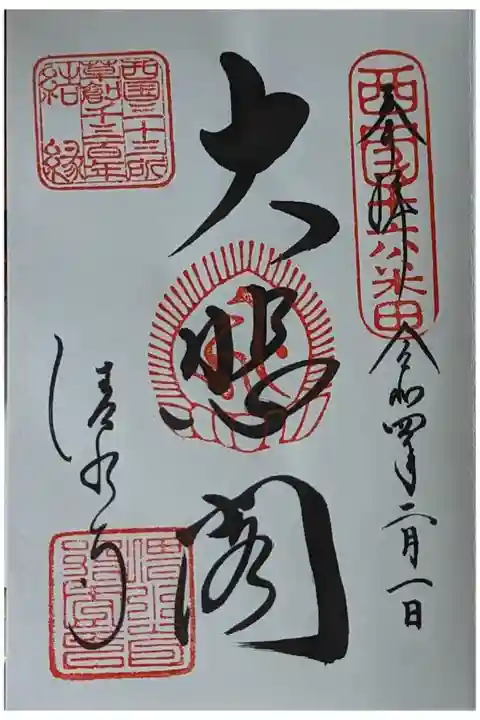 奉拝
令和四年二月一日
西国第十六番
大悲閣
清水寺
西国三十三所
草創千三百年
結縁